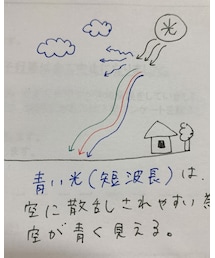 光
青い光(短波長)は、
空に散乱しされやすい為
空が青く見える。